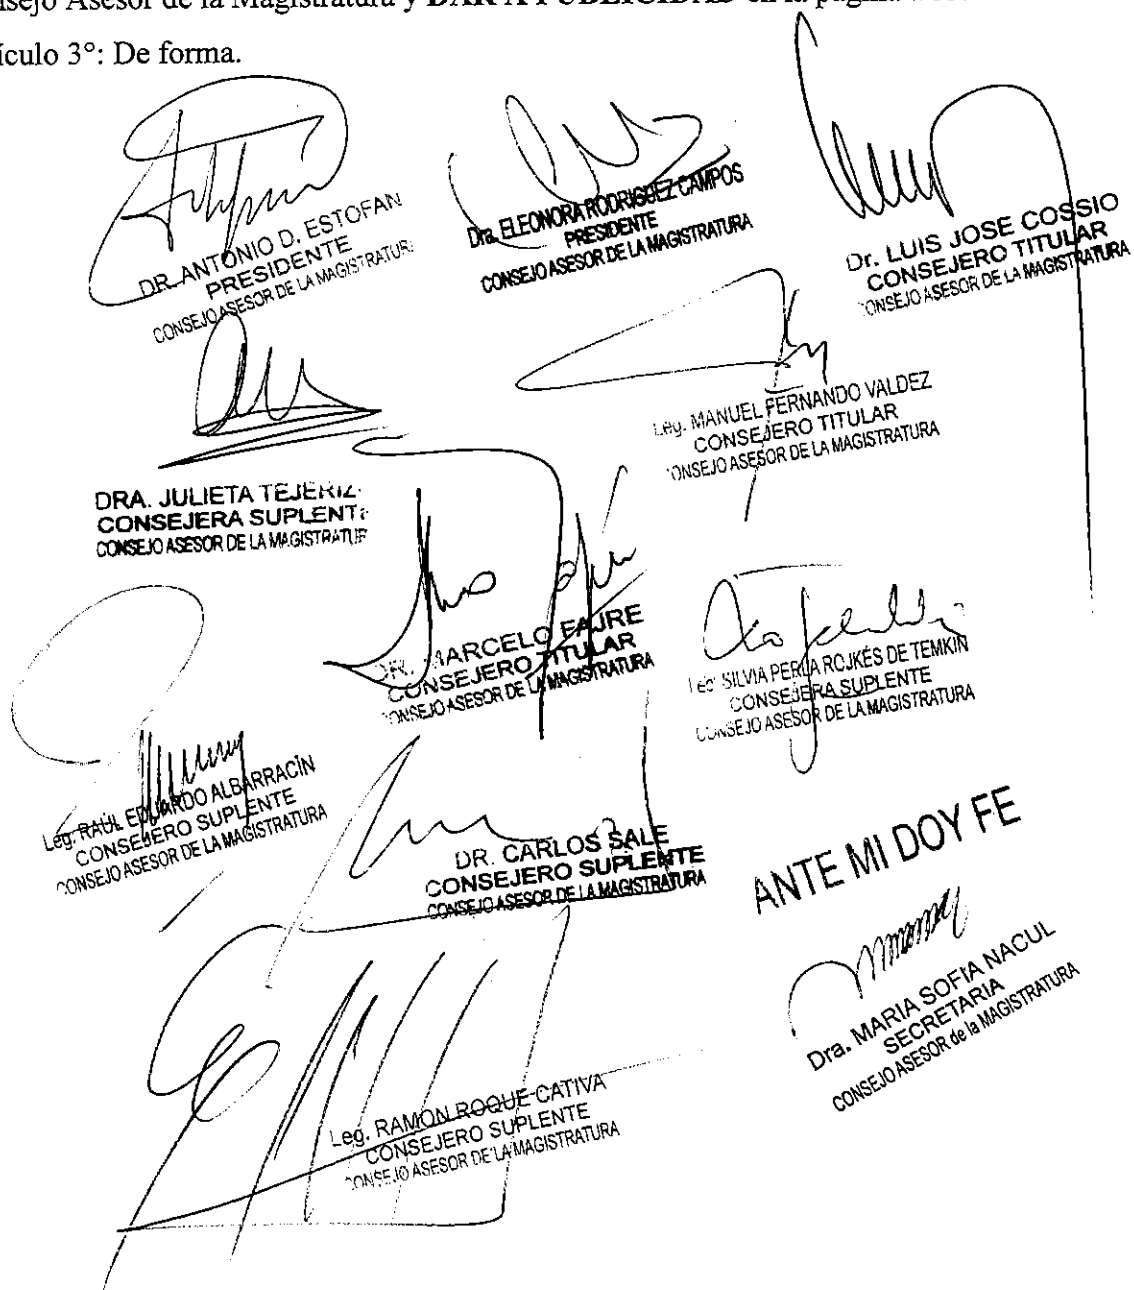 nsejo Asesor de la Magistratura y DAR A PUBLICIDAD en la página
ículo 3°: De forma.
DR. ANTONIO D. ESTOFAN
PRESIDENTE
CONSEJO ASESOR DE LA MAGISTRATUR
Dra. ELEONORA RODRIGUEZ CAMPOS
PRESIDENTE
CONSEJO ASESOR DE LA MAGISTRATURA
Dr. LUIS JOSE COSSIO
CONSEJERO TITULAR
CONSEJO ASESOR DE LA MAGISTRATURA
Leg. MANUEL FERNANDO VALDEZ
CONSEJERO TITULAR
CONSEJO ASESOR DE LA MAGISTRATURA
DRA. JULIETA TEJERIZ
CONSEJERA SUPLENT
CONSEJO ASESOR DE LA MAGISTRATUR
DR. MARCELO FAJRE
CONSEJERO TITULAR
CONSEJO ASESOR DE LA MAGISTRATURA
Leg. SILVIA PERLA ROJKÉS DE TEMKIN
CONSEJERA SUPLENTE
CONSEJO ASESOR DE LA MAGISTRATURA
Leg. RAÚL EDUARDO ALBARRACÍN
CONSEJERO SUPLENTE
CONSEJO ASESOR DE LA MAGISTRATURA
DR. CARLOS SALE
CONSEJERO SUPLENTE
CONSEJO ASESOR DE LA MAGISTRATURA
ANTE MI DOY FE
Dra. MARIA SOFIA NACUL
SECRETARIA
CONSEJO ASESOR de la MAGISTRATURA
Leg. RAMON ROQUE CATIVA
CONSEJERO SUPLENTE
CONSEJO ASESOR DE LA MAGISTRATURA